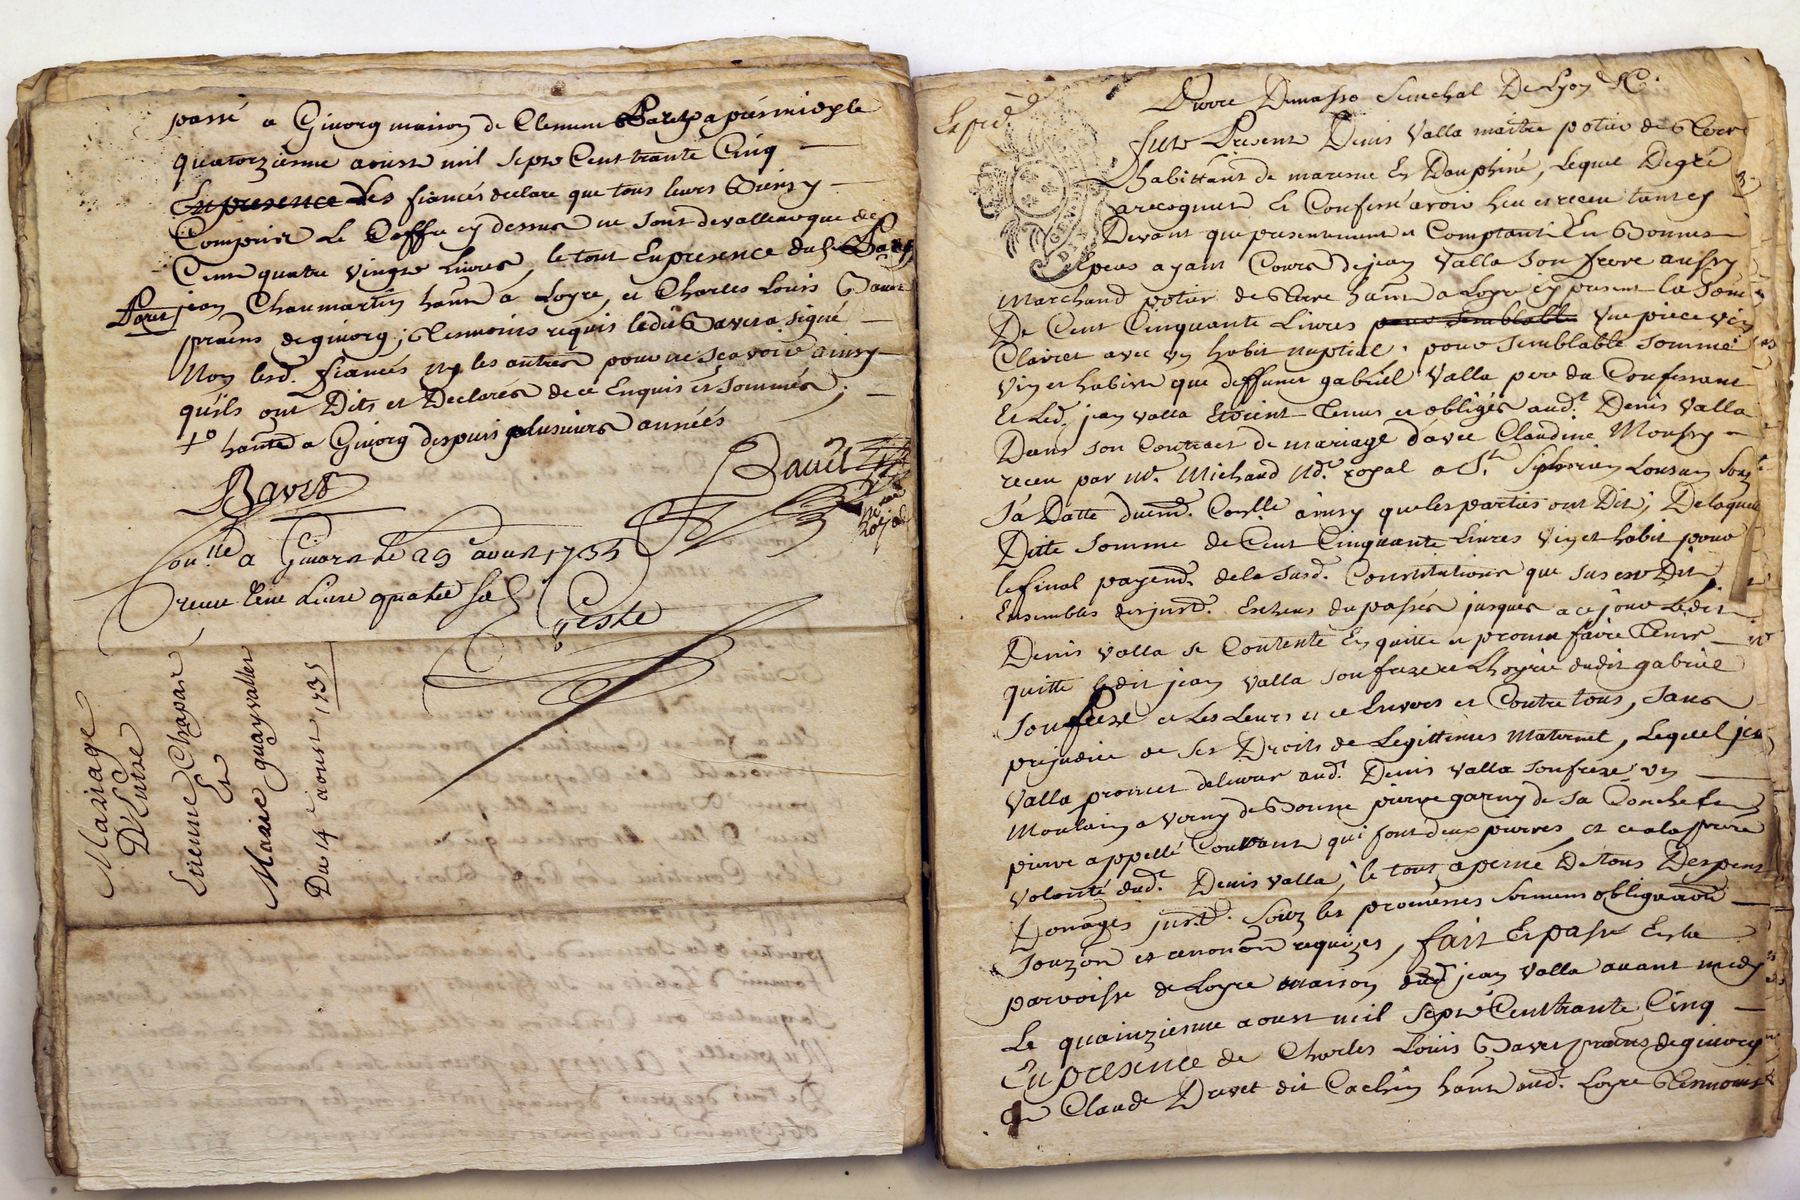 passé a Givorg maison de Clement Baret aprés midy le
quatorzieme aoust mil sept Cent trante Cinq
En presence des fiancés declare que tous leurs Biens
Compris Le Coffre cy dessus ne sont de valleur que de
Cent quatre vingts livres, le tout En presence dud.
Jean Chaumartin hant a Loyre, et Charles Louis Bavet
pratiens de givorg, temoins requis ledit Bavet a signé
Non lesd. fiancés ny les autres pour ne sçavoir ainsy
qu'ils ont Dits et Declarés de ce Enquis et sommés,
hante a Givorg despuis plusieurs années
Bavet
Bavet
Con.lle a Givors le 29 aoust 1735
receu une Livre quatre sols
Mariage
D'Entre
Etienne Chapas
Et
Marie guayvallet
Du 14e aoust 1735
Exped
GEN DE
Pierre Dumasso Senechal De Lyon &c.
Fut Present Denis Valla maitre potier de terre
habittant de maresne En Dauphiné, Lequel De gré
a recogneu Et Confessé avoir heu et receu tant cy
Devant que presentement et Comptant En Bonnes
Especes ayant Cours de jean Valla son frere aussy
Marchand potier de terre hant a Loyre cy present la somme
De Cent Cinquante Livres pour semblable une piece vin
Clairet avec un habit nuptial, pour semblable somme
vin et habit que deffunct gabriel Valla pere du Confessant
Et Led. jean valla Etoient tenus et obligés aud. Denis Valla
Dans son Contract de mariage d'avec Claudine Moussy
receu par Me. Michaud Nore. royal a St. Siphorien
sa Datte duemt. Con.lle ainsy que les parties ont Dit, De laquelle
Ditte somme de Cent Cinquante Livres vin et habit pour
le final payemt. de la susd. Constitution que sus est Dit
Ensembles des Escheus du passés jusques a ce jour Ledit
Denis valla se Contente En quitte et promet faire tenir
quitte ledit jean Valla son freze et L'hoyrie dudit gabriel
son freze et Les Leurs et ce Envers et Contre tous, sans
prejudice de ses Droits de Legittimes Maternel, Lequel jean
Valla promet delivrer aud. Denis Valla son freze un
Moulain a verny de Bonne pierre garny de sa Conche
pierre appellé Couvant qui font deux pierres, et ce a la premiere
volonté dud. Denis valla, le tout a peine De tous Despens
Domages Souz les promesses sermens obligations
et renonons requizes, fait Et passé En la
parroisse de Loyre maison dud jean Valla avant midy
Le quainzieme aoust mil sept Cent trante Cinq
En presence de Charles Louis Bavet pratiens de givorg
et Claude Drevet dit Cachin hant aud. Loyre temoins